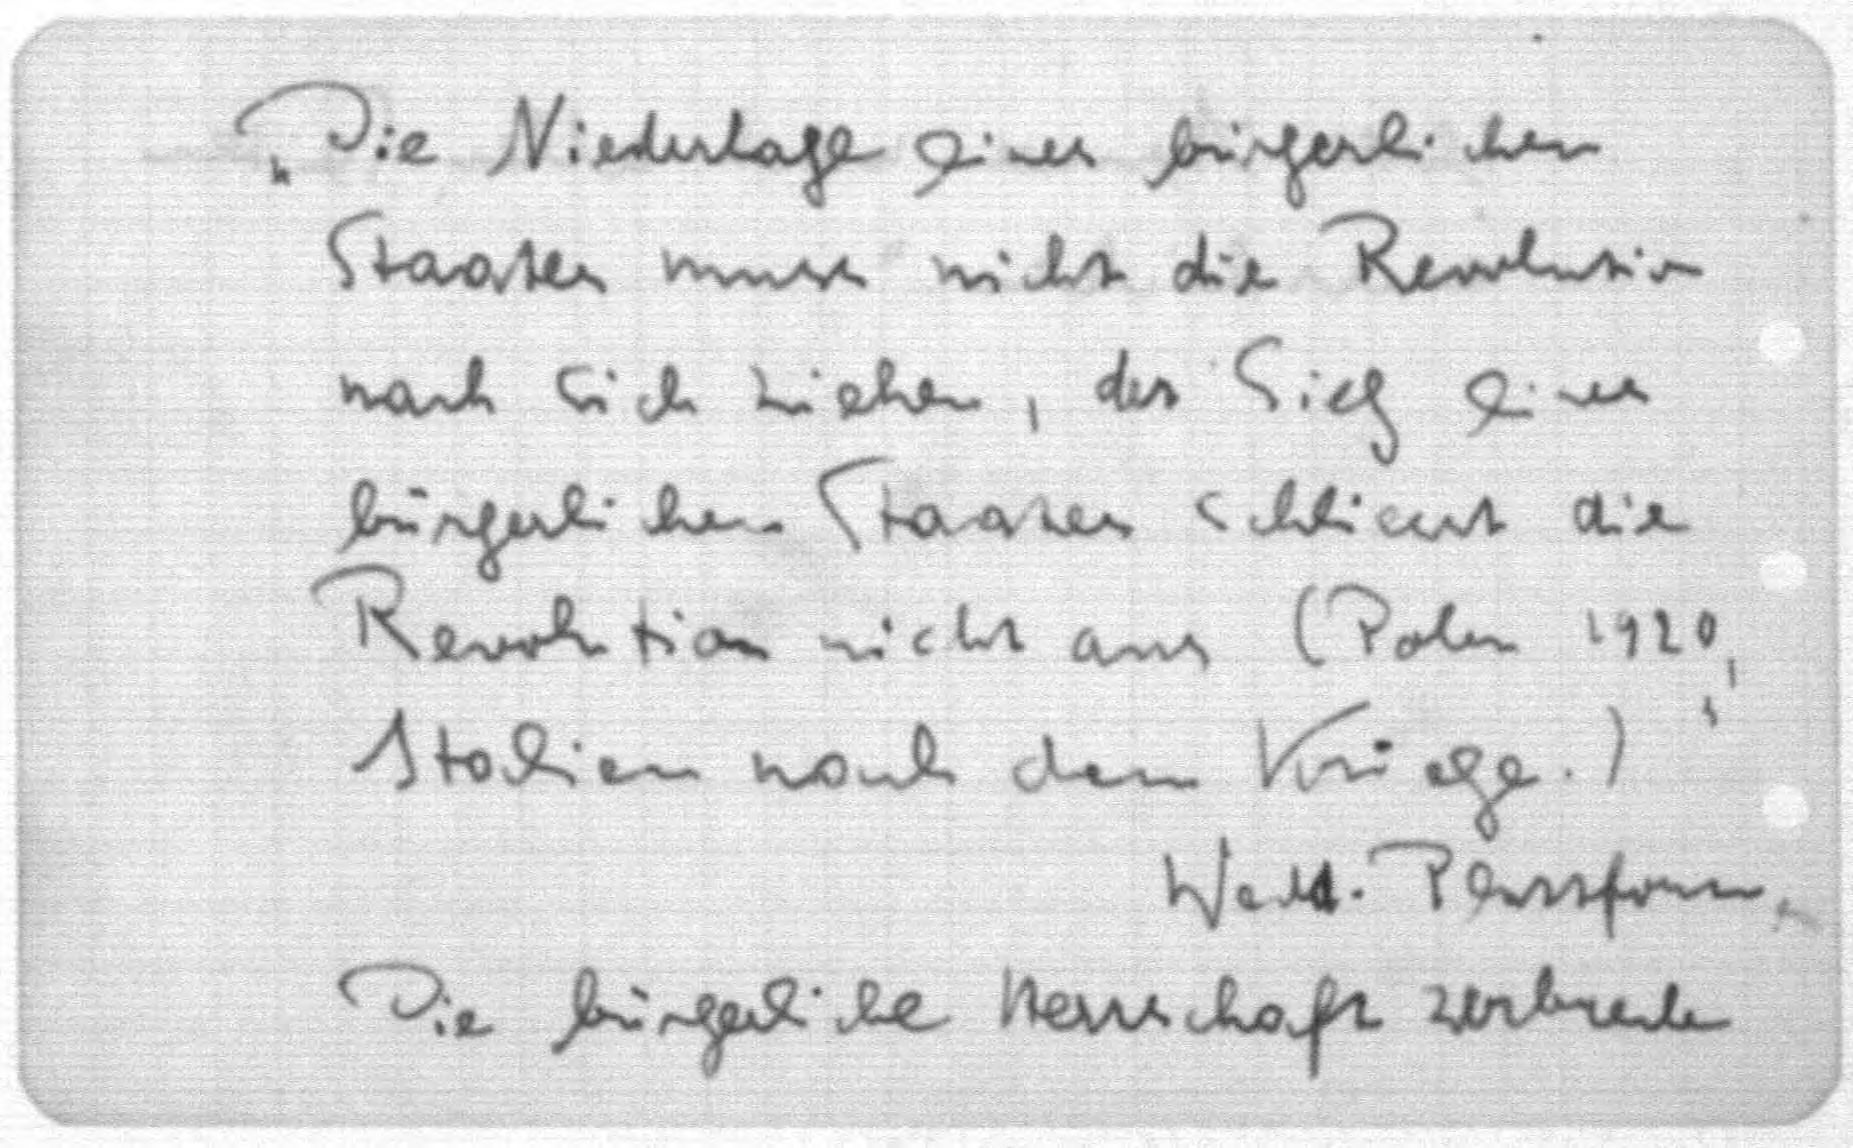 „Die Niederlage eines bürgerlichen
Staates muss nicht die Revolution
nach sich ziehen, der Sieg eines
bürgerlichen Staates schliesst die
Revolution nicht aus (Polen 1920,
Italien nach dem Kriege.)"
Plattform.
Die bürgerliche Herrschaft zerbreche